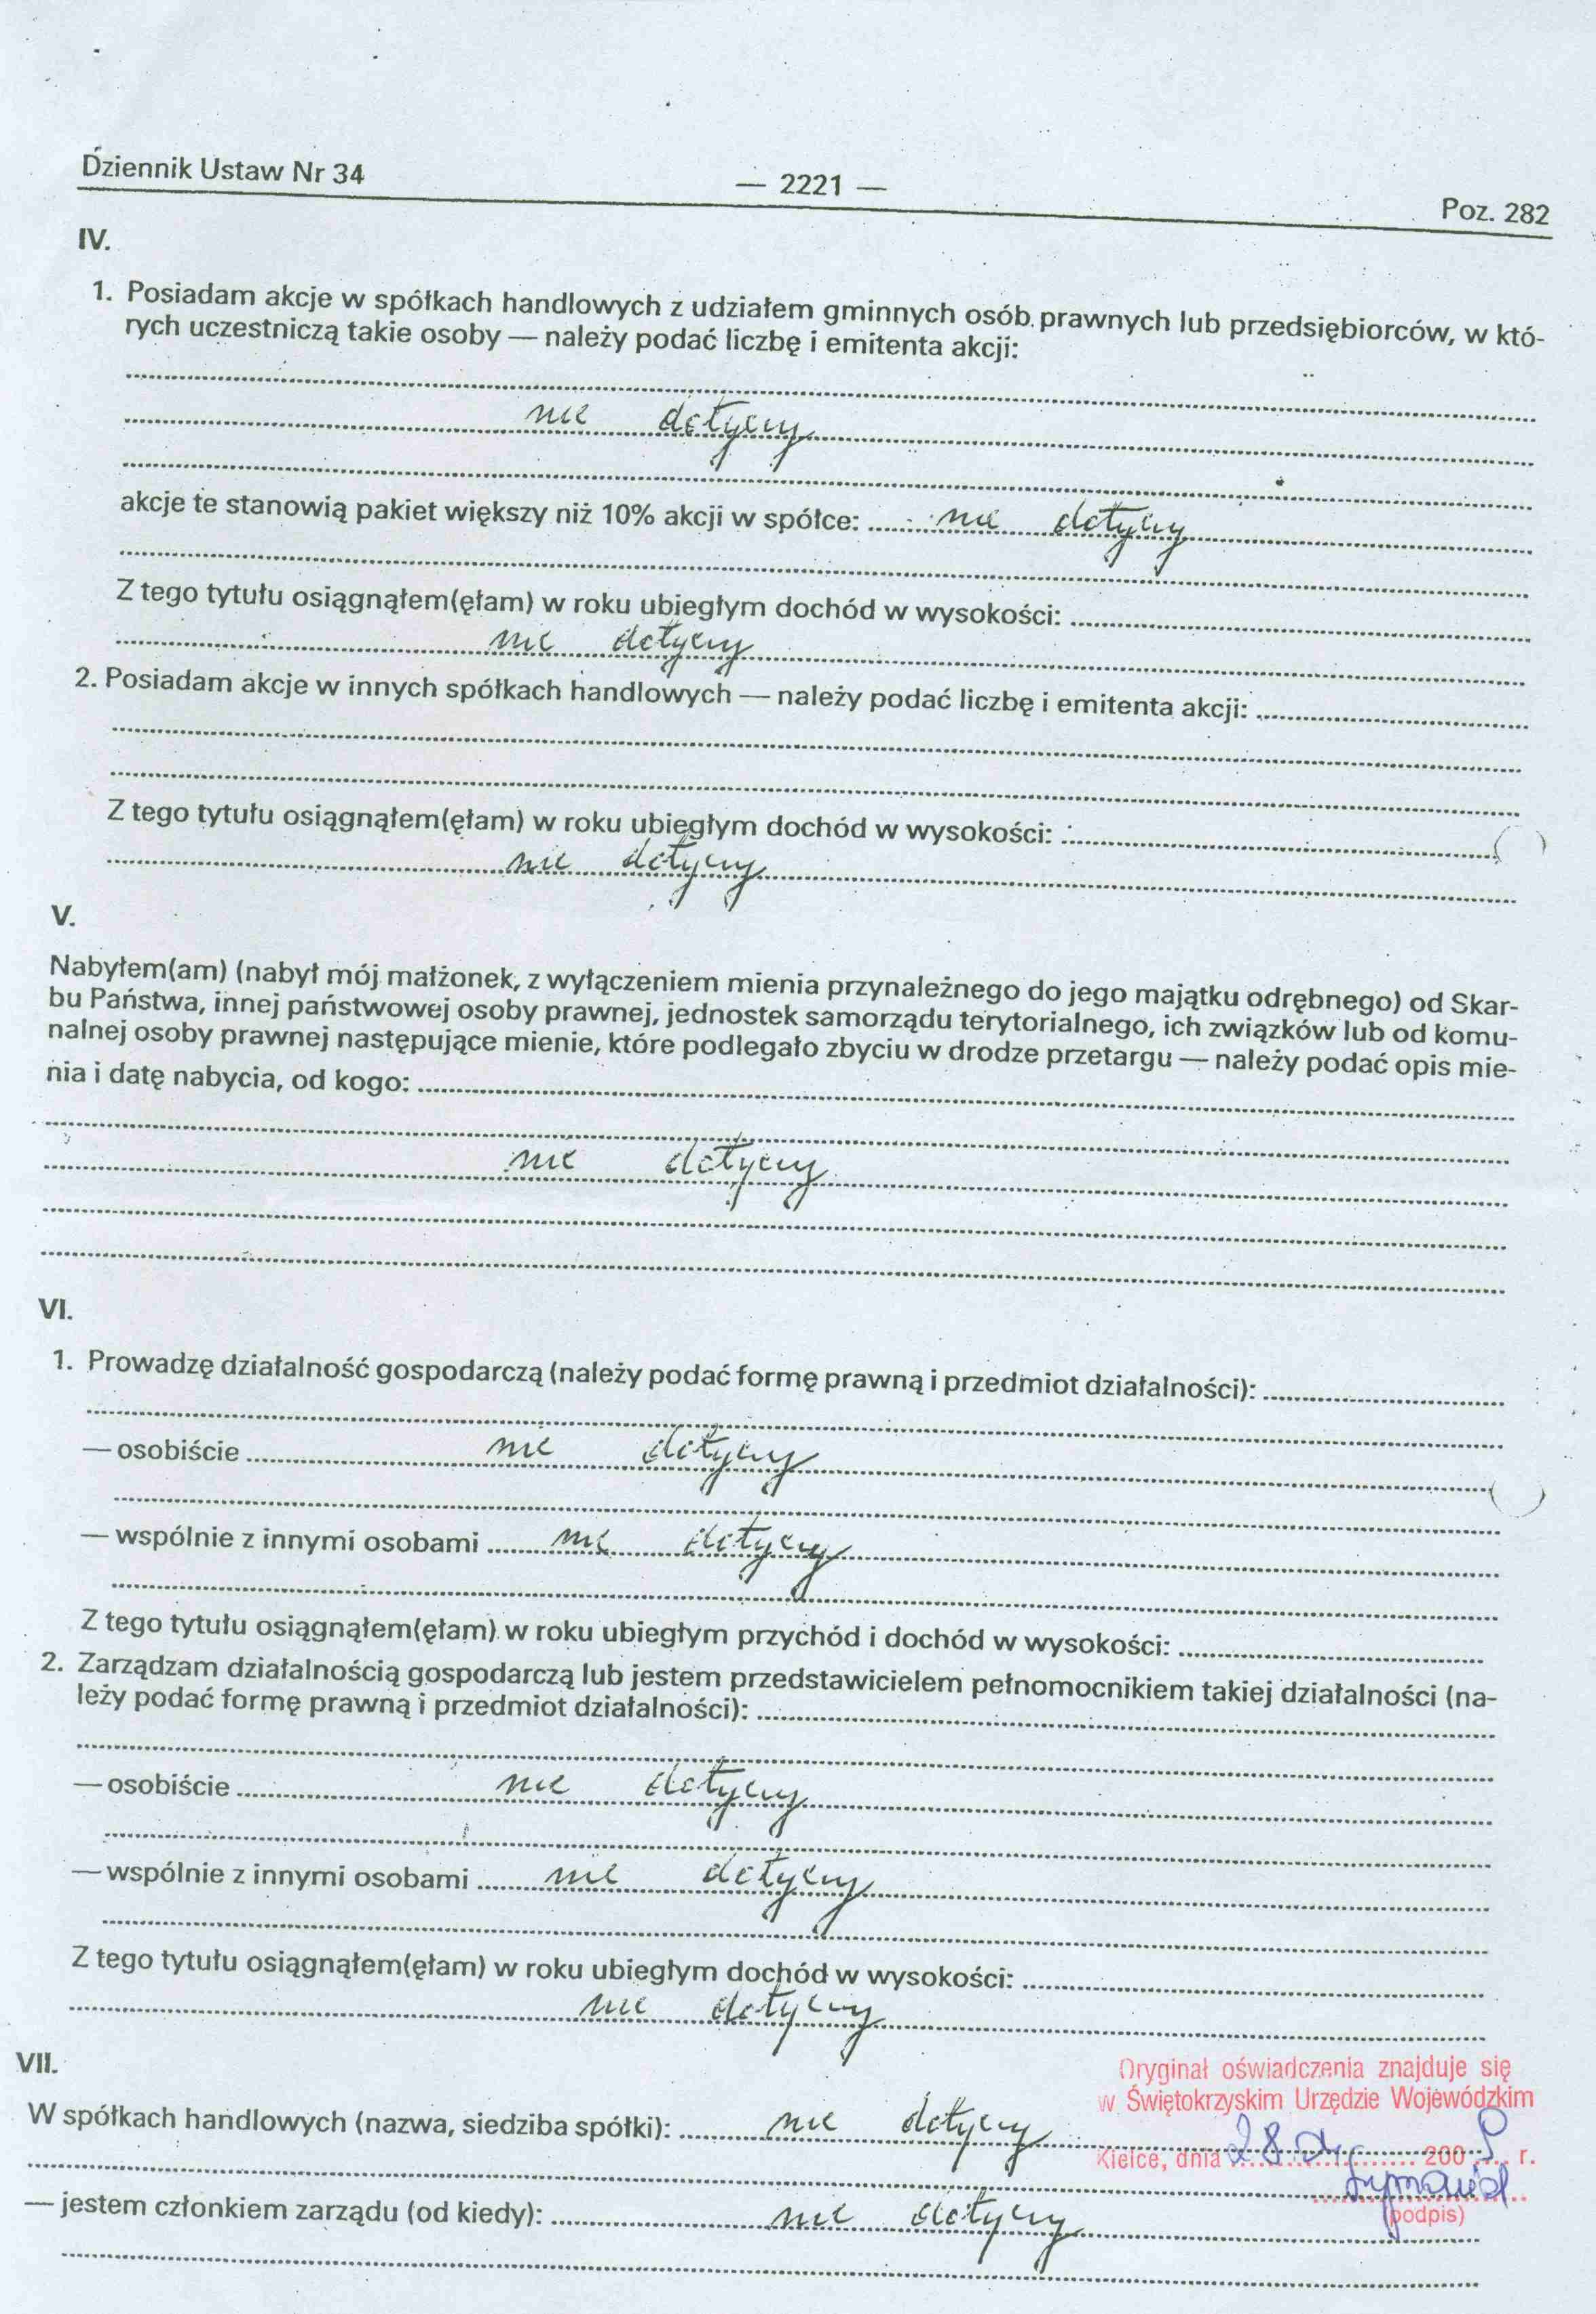 Dziennik Ustaw Nr 34
— 2221 —
Poz. 282
IV.
1. Posiadam akcje w spółkach handlowych z udziałem gminnych osób prawnych lub przedsiębiorców, w któ-
rych uczestniczą takie osoby — należy podać liczbę i emitenta akcji:
nie dotyczy
akcje te stanowią pakiet większy niż 10% akcji w spółce: nie dotyczy
Z tego tytułu osiągnąłem(ęłam) w roku ubiegłym dochód w wysokości:
nie dotyczy
2. Posiadam akcje w innych spółkach handlowych — należy podać liczbę i emitenta akcji:
Z tego tytułu osiągnąłem(ęłam) w roku ubiegłym dochód w wysokości:
nie dotyczy
V.
Nabyłem(am) (nabył mój małżonek, z wyłączeniem mienia przynależnego do jego majątku odrębnego) od Skar-
bu Państwa, innej państwowej osoby prawnej, jednostek samorządu terytorialnego, ich związków lub od komu-
nalnej osoby prawnej następujące mienie, które podlegało zbyciu w drodze przetargu — należy podać opis mie-
nia i datę nabycia, od kogo:
nie dotyczy
VI.
1. Prowadzę działalność gospodarczą (należy podać formę prawną i przedmiot działalności):
— osobiście nie dotyczy
— wspólnie z innymi osobami nie dotyczy
Z tego tytułu osiągnąłem(ęłam) w roku ubiegłym przychód i dochód w wysokości:
2. Zarządzam działalnością gospodarczą lub jestem przedstawicielem pełnomocnikiem takiej działalności (na-
leży podać formę prawną i przedmiot działalności):
— osobiście nie dotyczy
— wspólnie z innymi osobami nie dotyczy
Z tego tytułu osiągnąłem(ęłam) w roku ubiegłym dochód w wysokości:
nie dotyczy
VII.
Oryginał oświadczenia znajduje się
w Świętokrzyskim Urzędzie Wojewódzkim
W spółkach handlowych (nazwa, siedziba spółki): nie dotyczy
Kielce, dnia 28 200 r.
— jestem członkiem zarządu (od kiedy): nie dotyczy
(podpis)